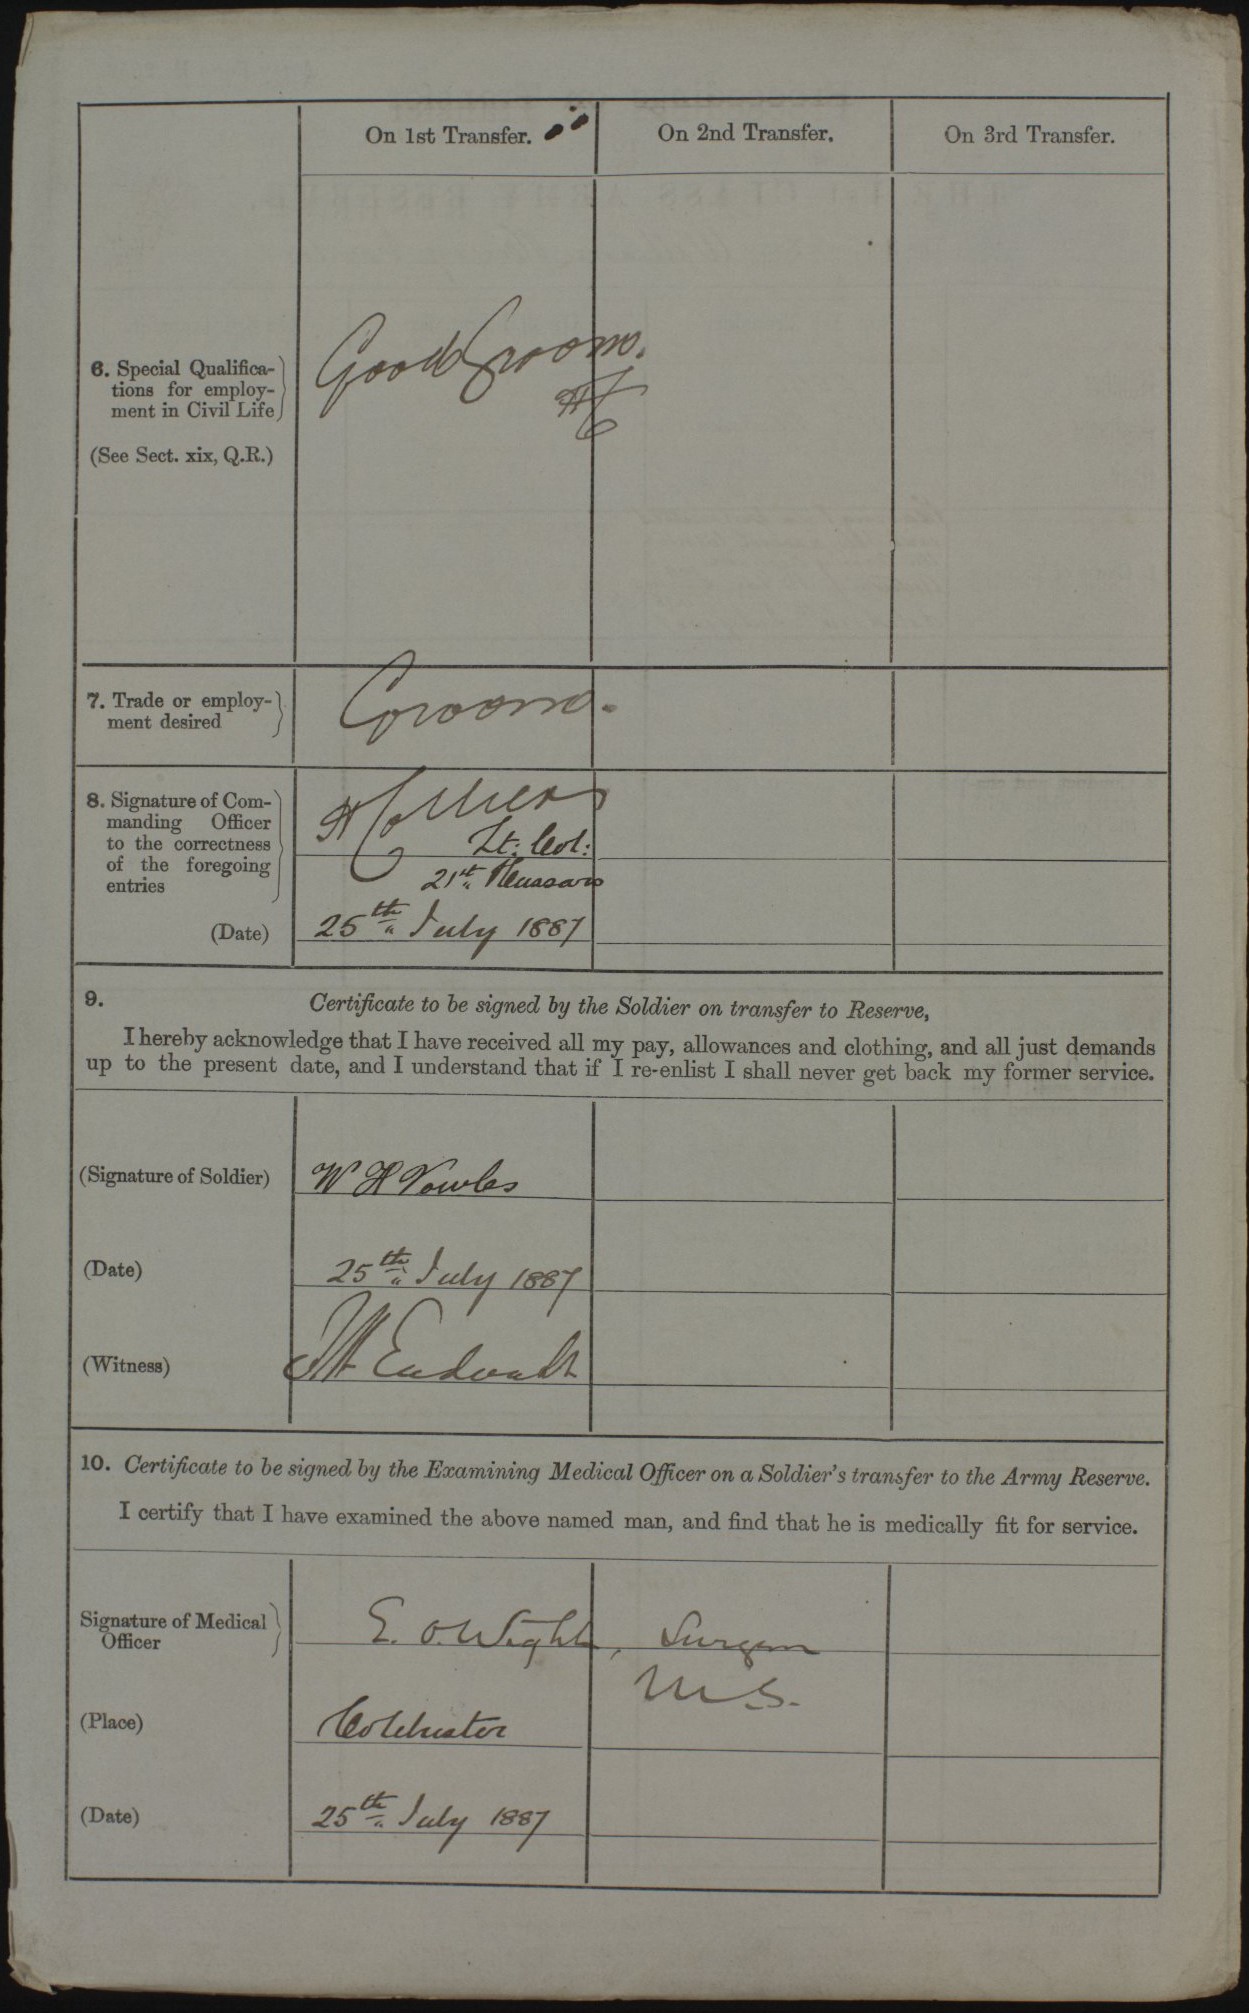 On 1st Transfer. On 2nd Transfer. On 3rd Transfer.
6. Special Qualifica-
tions for employ-
ment in Civil Life
(See Sect. xix, Q.R.)
Good Groom.
HC
7. Trade or employ-
ment desired
Groom.
8. Signature of Com-
manding Officer
to the correctness
of the foregoing
entries
H
Lt: Col:
21st Hussars
(Date) 25th July 1887
9. Certificate to be signed by the Soldier on transfer to Reserve,
I hereby acknowledge that I have received all my pay, allowances and clothing, and all just demands
up to the present date, and I understand that if I re-enlist I shall never get back my former service.
(Signature of Soldier) W H Vowles
(Date) 25th July 1887
(Witness)
10. Certificate to be signed by the Examining Medical Officer on a Soldier's transfer to the Army Reserve.
I certify that I have examined the above named man, and find that he is medically fit for service.
Signature of Medical
Officer
E. O. Wight, Surgeon
M.S.
(Place) Colchester
(Date) 25th July 1887